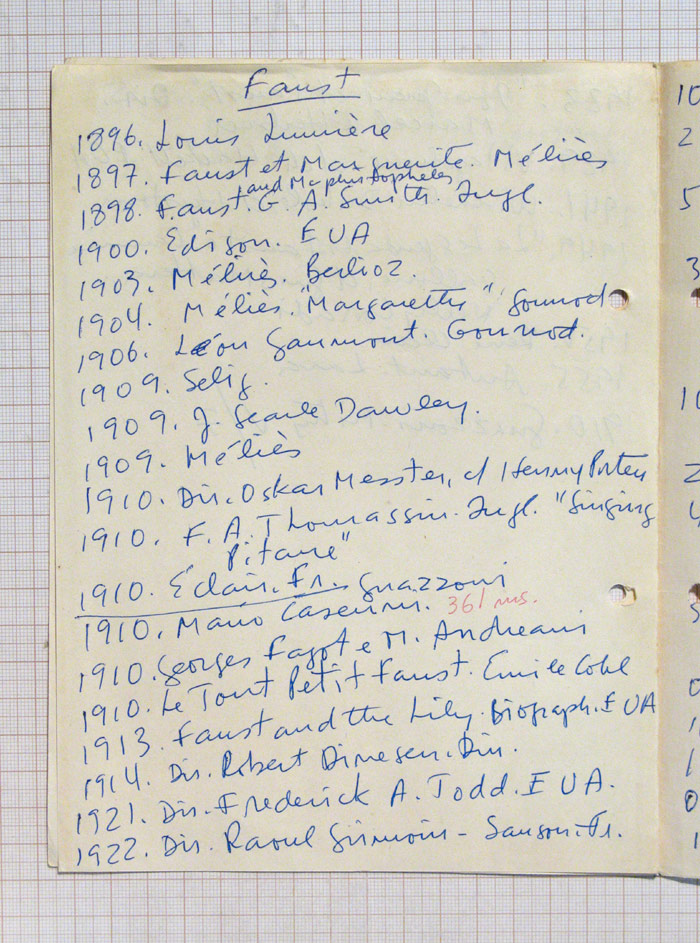 Faust
1896. Louis Lumière
1897. Faust et Marguerite. Méliès
and Mephistopheles
1898. Faust G. A. Smith. Ingl.
1900. Edison. E U A
1903. Méliès. Berlioz.
1904. Méliès. "Margarette" Gounod
1906. Léon Gaumont. Gounod.
1909. Selig.
1909. J. Searle Dawley.
1909. Méliès
1910. Dir. Oskar Messter, c/ Henny Porten
1910. F. A. Thomassin. Ingl. "Singing
Pitaure"
1910. Éclair. Fr. Guazzoni
1910. Mario Caserini. 361 ms.
1910. Georges Fagot e M. Andreani
1910. Le Tout Petit Faust. Emile Cohl
1913. Faust and the Lily. Biograph. E UA
1914. Dir. Robert Dinesen. Din.
1921. Dir. Frederick A. Todd. E U A.
1922. Dir. Raoul - Sanson. Fr.
10
2
5
3
10